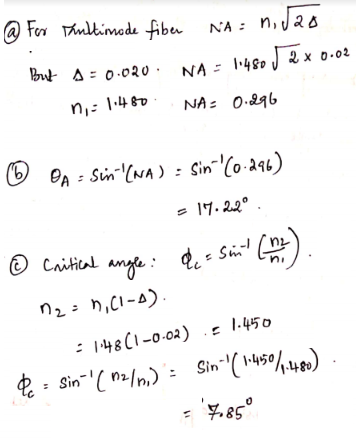 ⓐ For Multimode fiber NA = n₁√2Δ
But Δ = 0.020. NA = 1.480 √2 x 0.02
n₁ = 1.480 NA = 0.296
ⓑ θA = Sin⁻¹(NA) = Sin⁻¹(0.296)
= 17.22°.
ⓒ Critical angle: ϕc = Sin⁻¹(n2/n1).
n2 = n1(1-Δ).
= 1.48(1-0.02). = 1.450
ϕc = Sin⁻¹(n2/n1) = Sin⁻¹(1.450/1.480).
= 7.85°